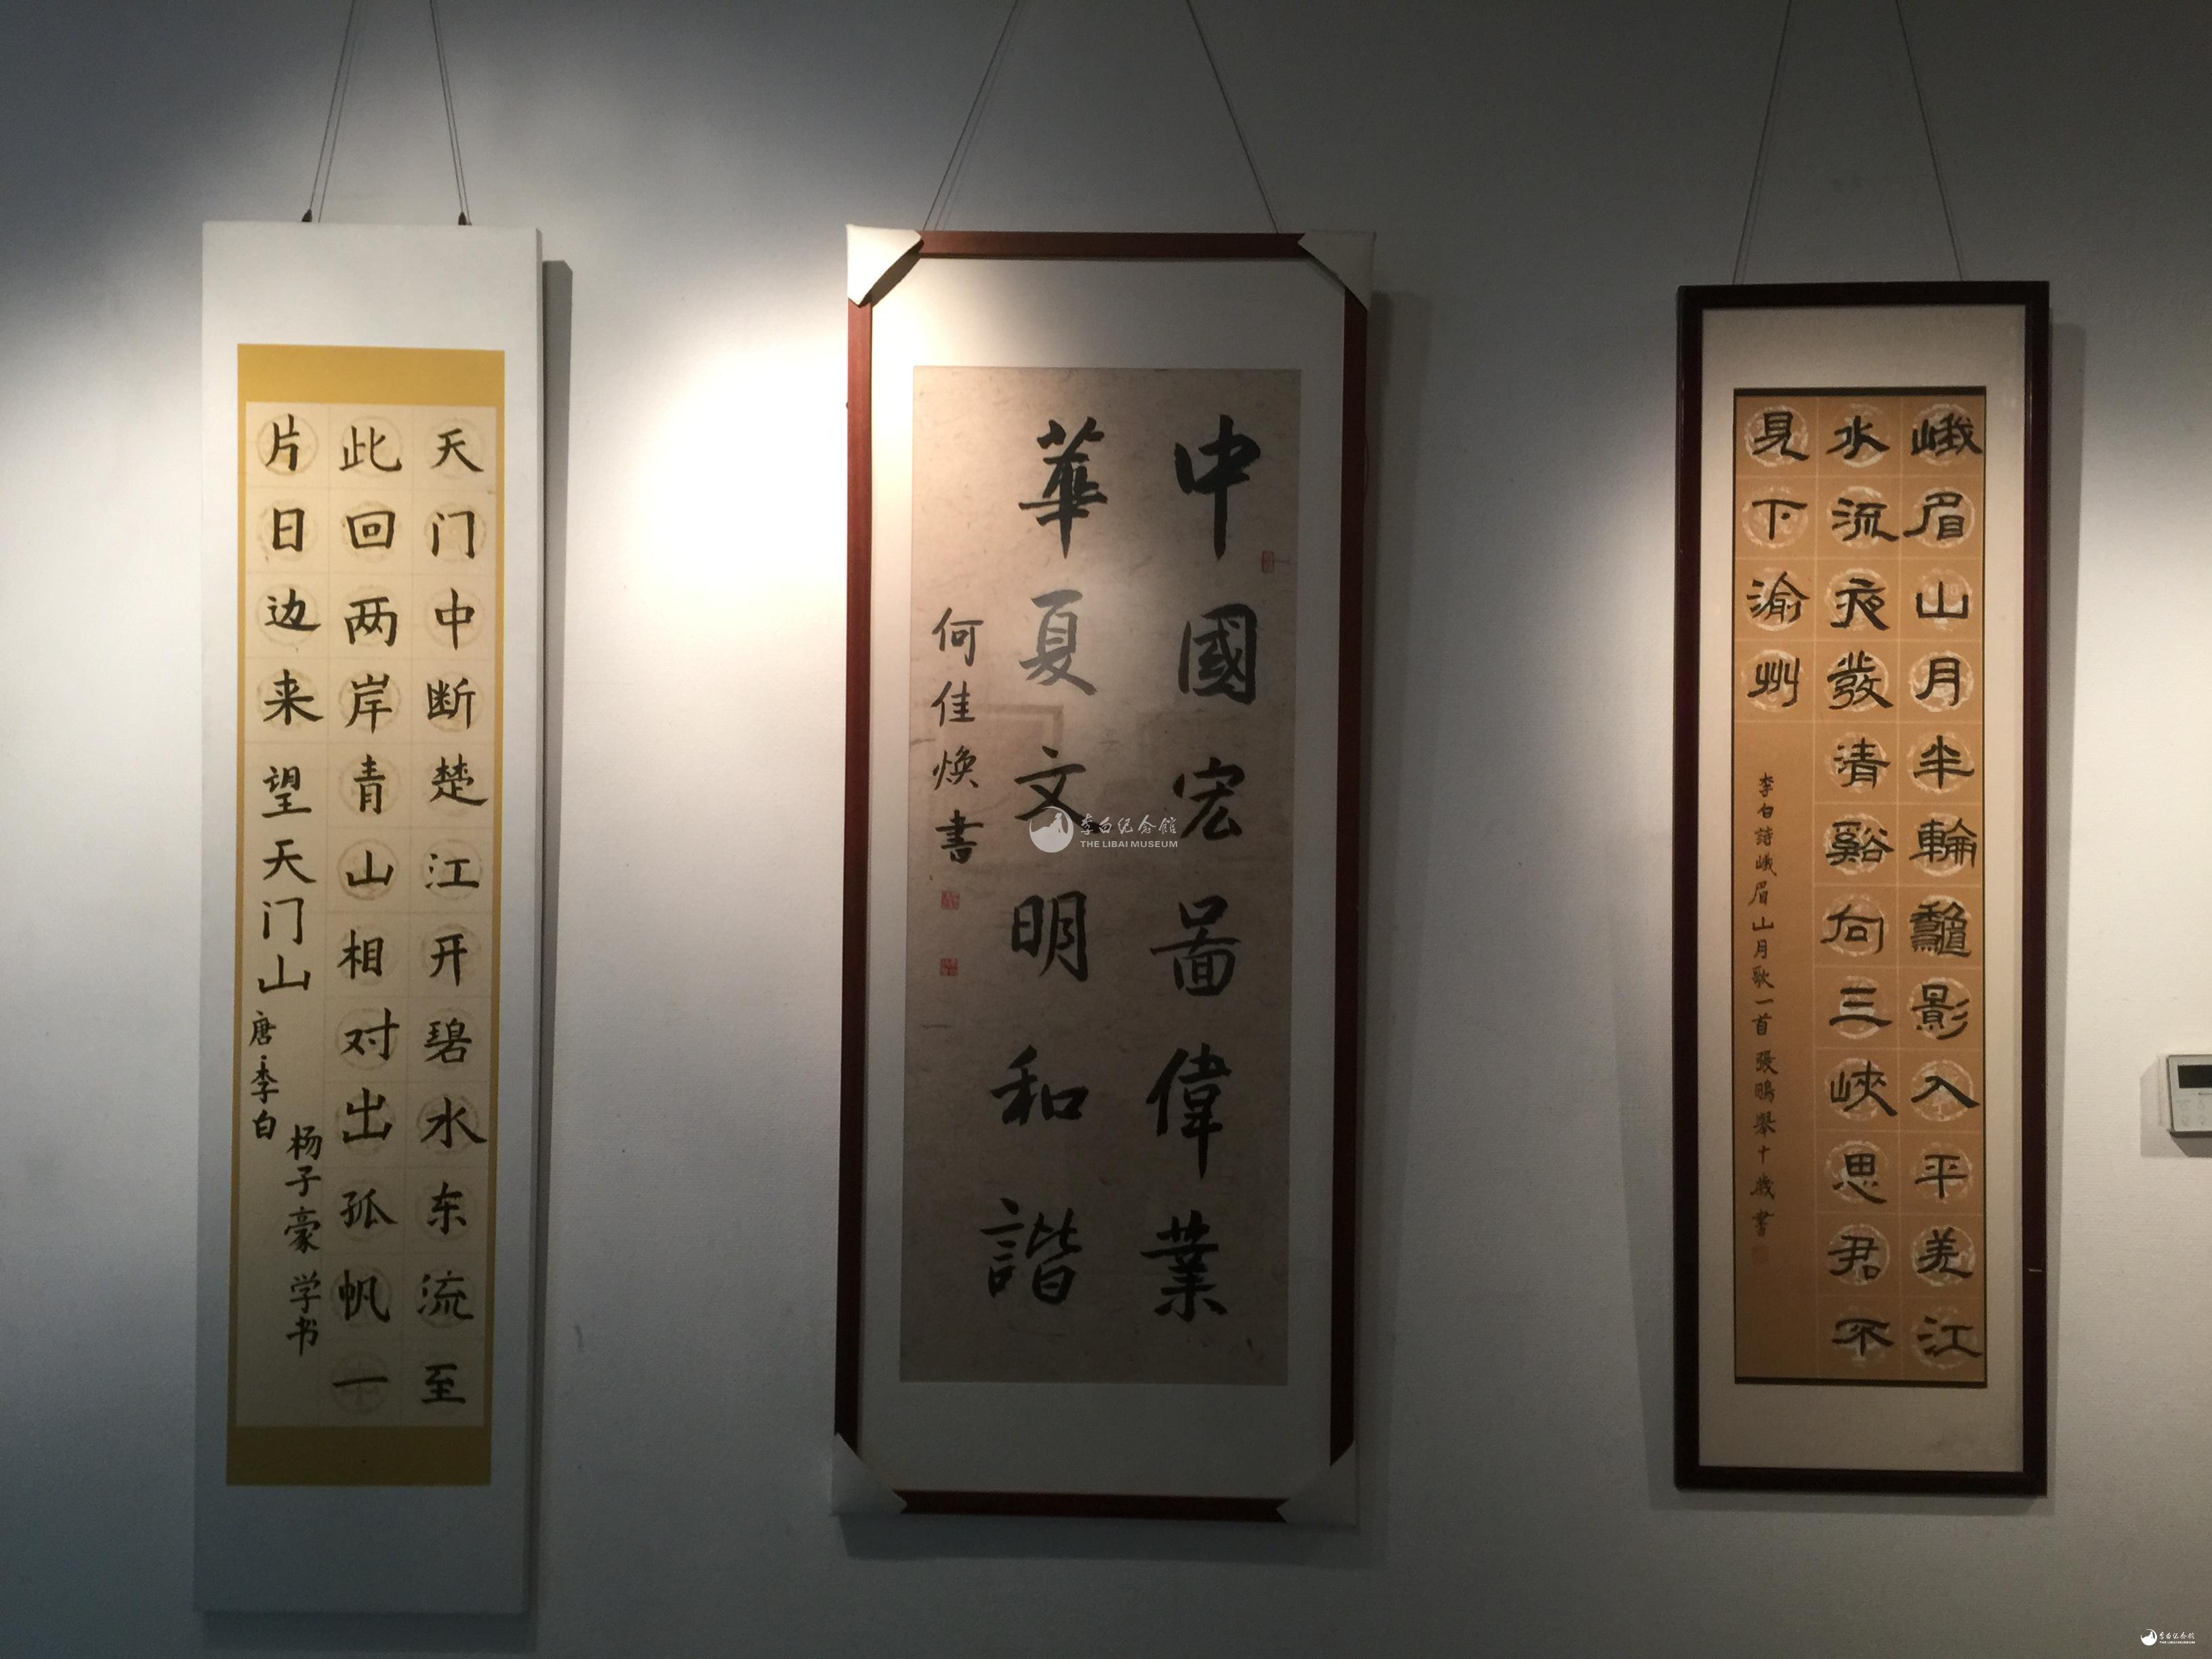 天门中断楚江开碧水东流至
此回两岸青山相对出孤帆一
片日边来
望天门山
唐·李白
杨子豪学书
中國宏啚偉業
華夏文明和諧
何佳焕書
峨眉山月半輪龝影入平羌江
水流夜發清谿向三峽思君不
見下渝州
李白詩峨眉山月歌一首張鵰舉十歲書
李白纪念館
THE LIBAI MUSEUM
李白纪念館
THE LIBAI MUSEUM